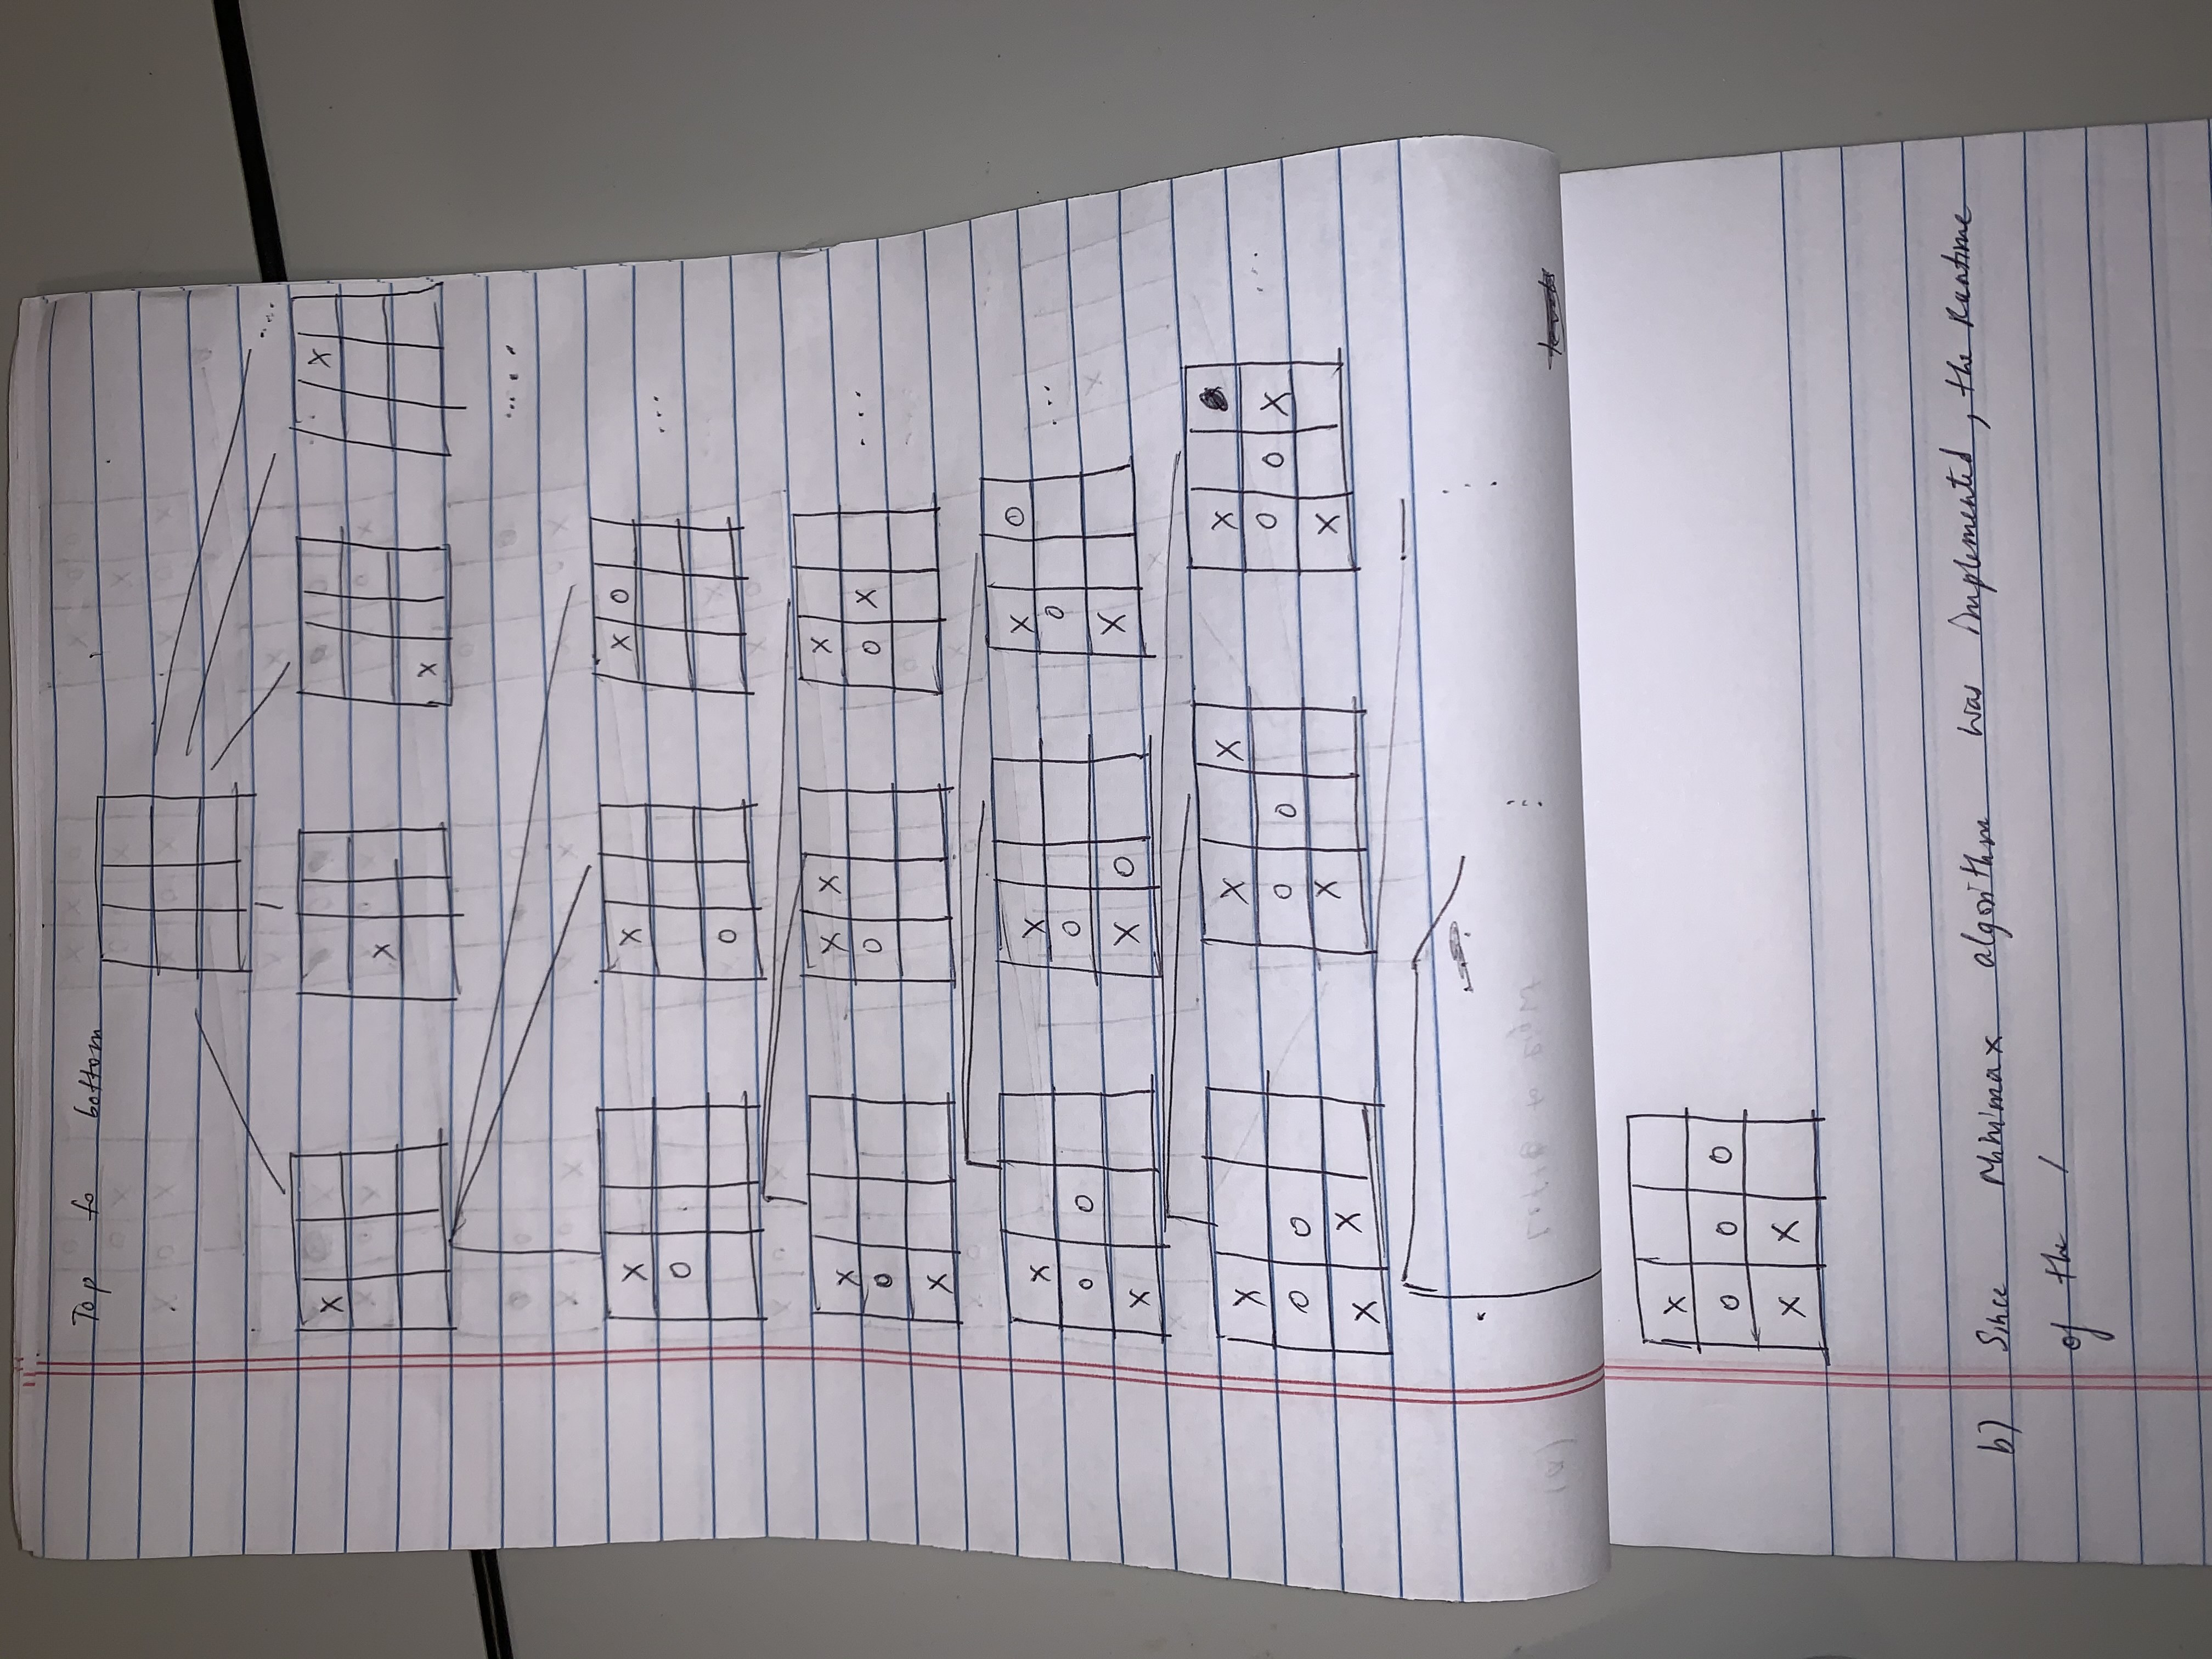 Top to bottom
....
X
X
X
X
.....
X
O
X
O
X O
...
X
O
X
X X
O
X
O X
...
X
O O
X
X
O
X O
X O
O
X
...
X
O O
X X
X X
O O
X
X
O O X
X
...
X
O O O
X X
b) Since Minimax algorithm was implemented, the Runtime
of the /